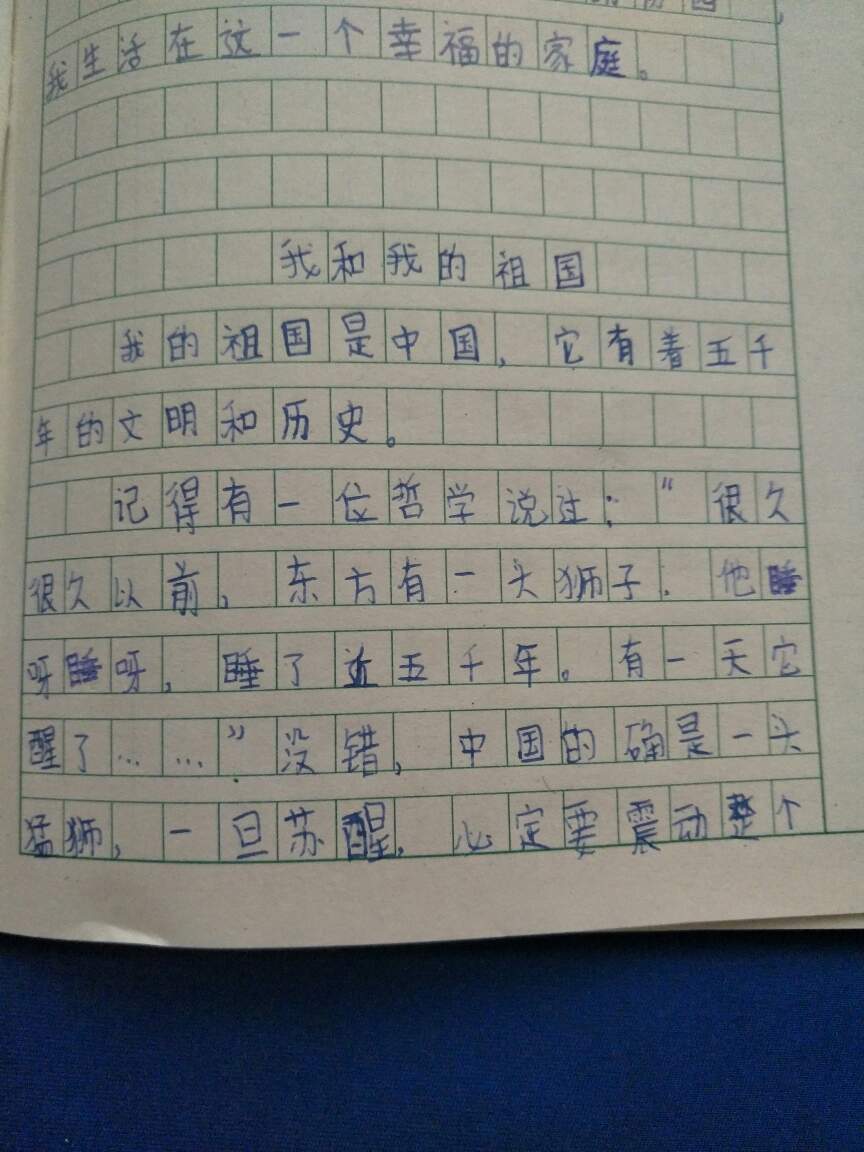 我生活在这一个幸福的家庭。
我和我的祖国
我的祖国是中国，它有着五千
年的文明和历史。
记得有一位哲学说过：“很久
很久以前，东方有一头狮子．他睡
呀睡呀，睡了近五千年。有一天它
醒了……”没错，中国的确是一头
猛狮，一旦苏醒，心定要震动整个